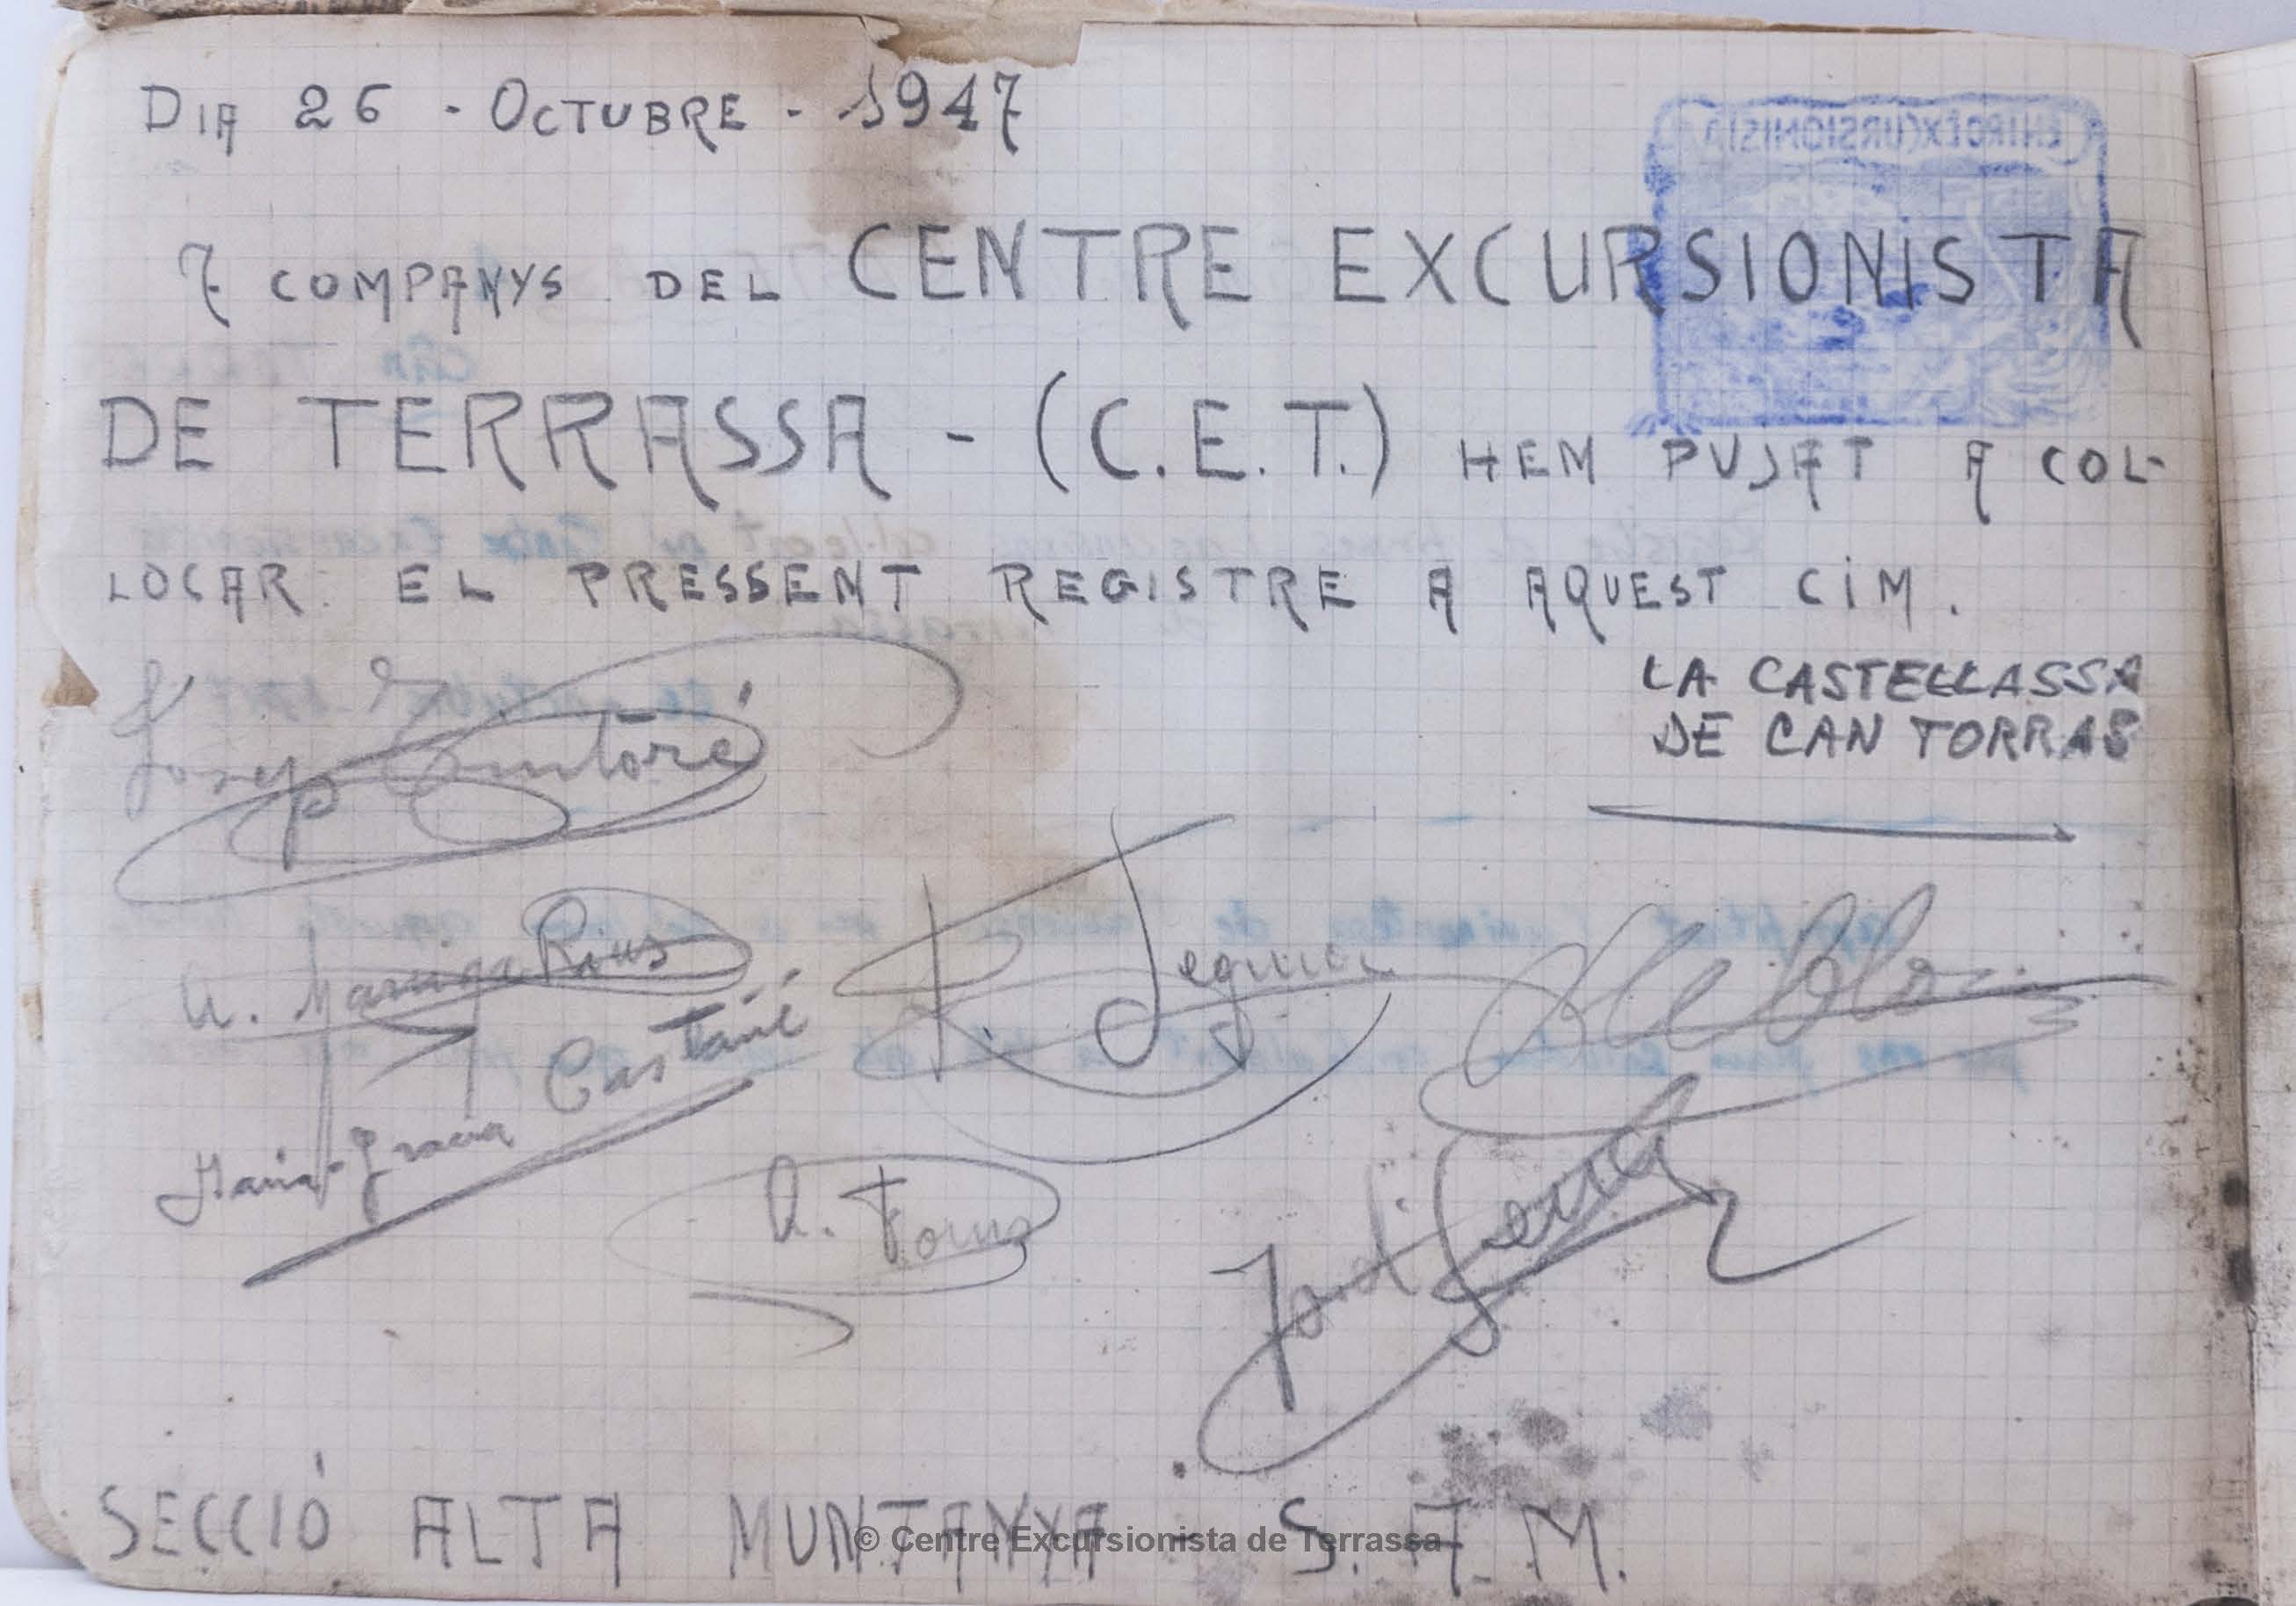 DIA 26 - OCTUBRE - 1947
7 COMPANYS DEL CENTRE EXCURSIONISTA
DE TERRASSA - (C.E.T.) HEM PUJAT A COL-
LOCAR EL PRESSENT REGISTRE A AQUEST CIM.
LA CASTELLASSA
DE CAN TORRAS
Josep
A. Rius
Maria-Gracia Castañé
A. Forns
Jordi Serra
SECCIÓ ALTA MUNTANYA - S.A.M.
© Centre Excursionista de Terrassa